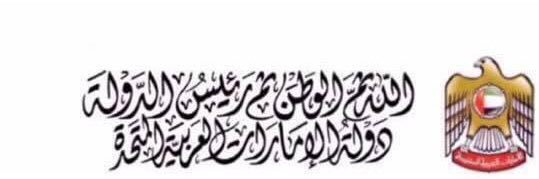 الله ثم الوطن ثم رئيس الدولة
دولة الإمارات العربية المتحدة